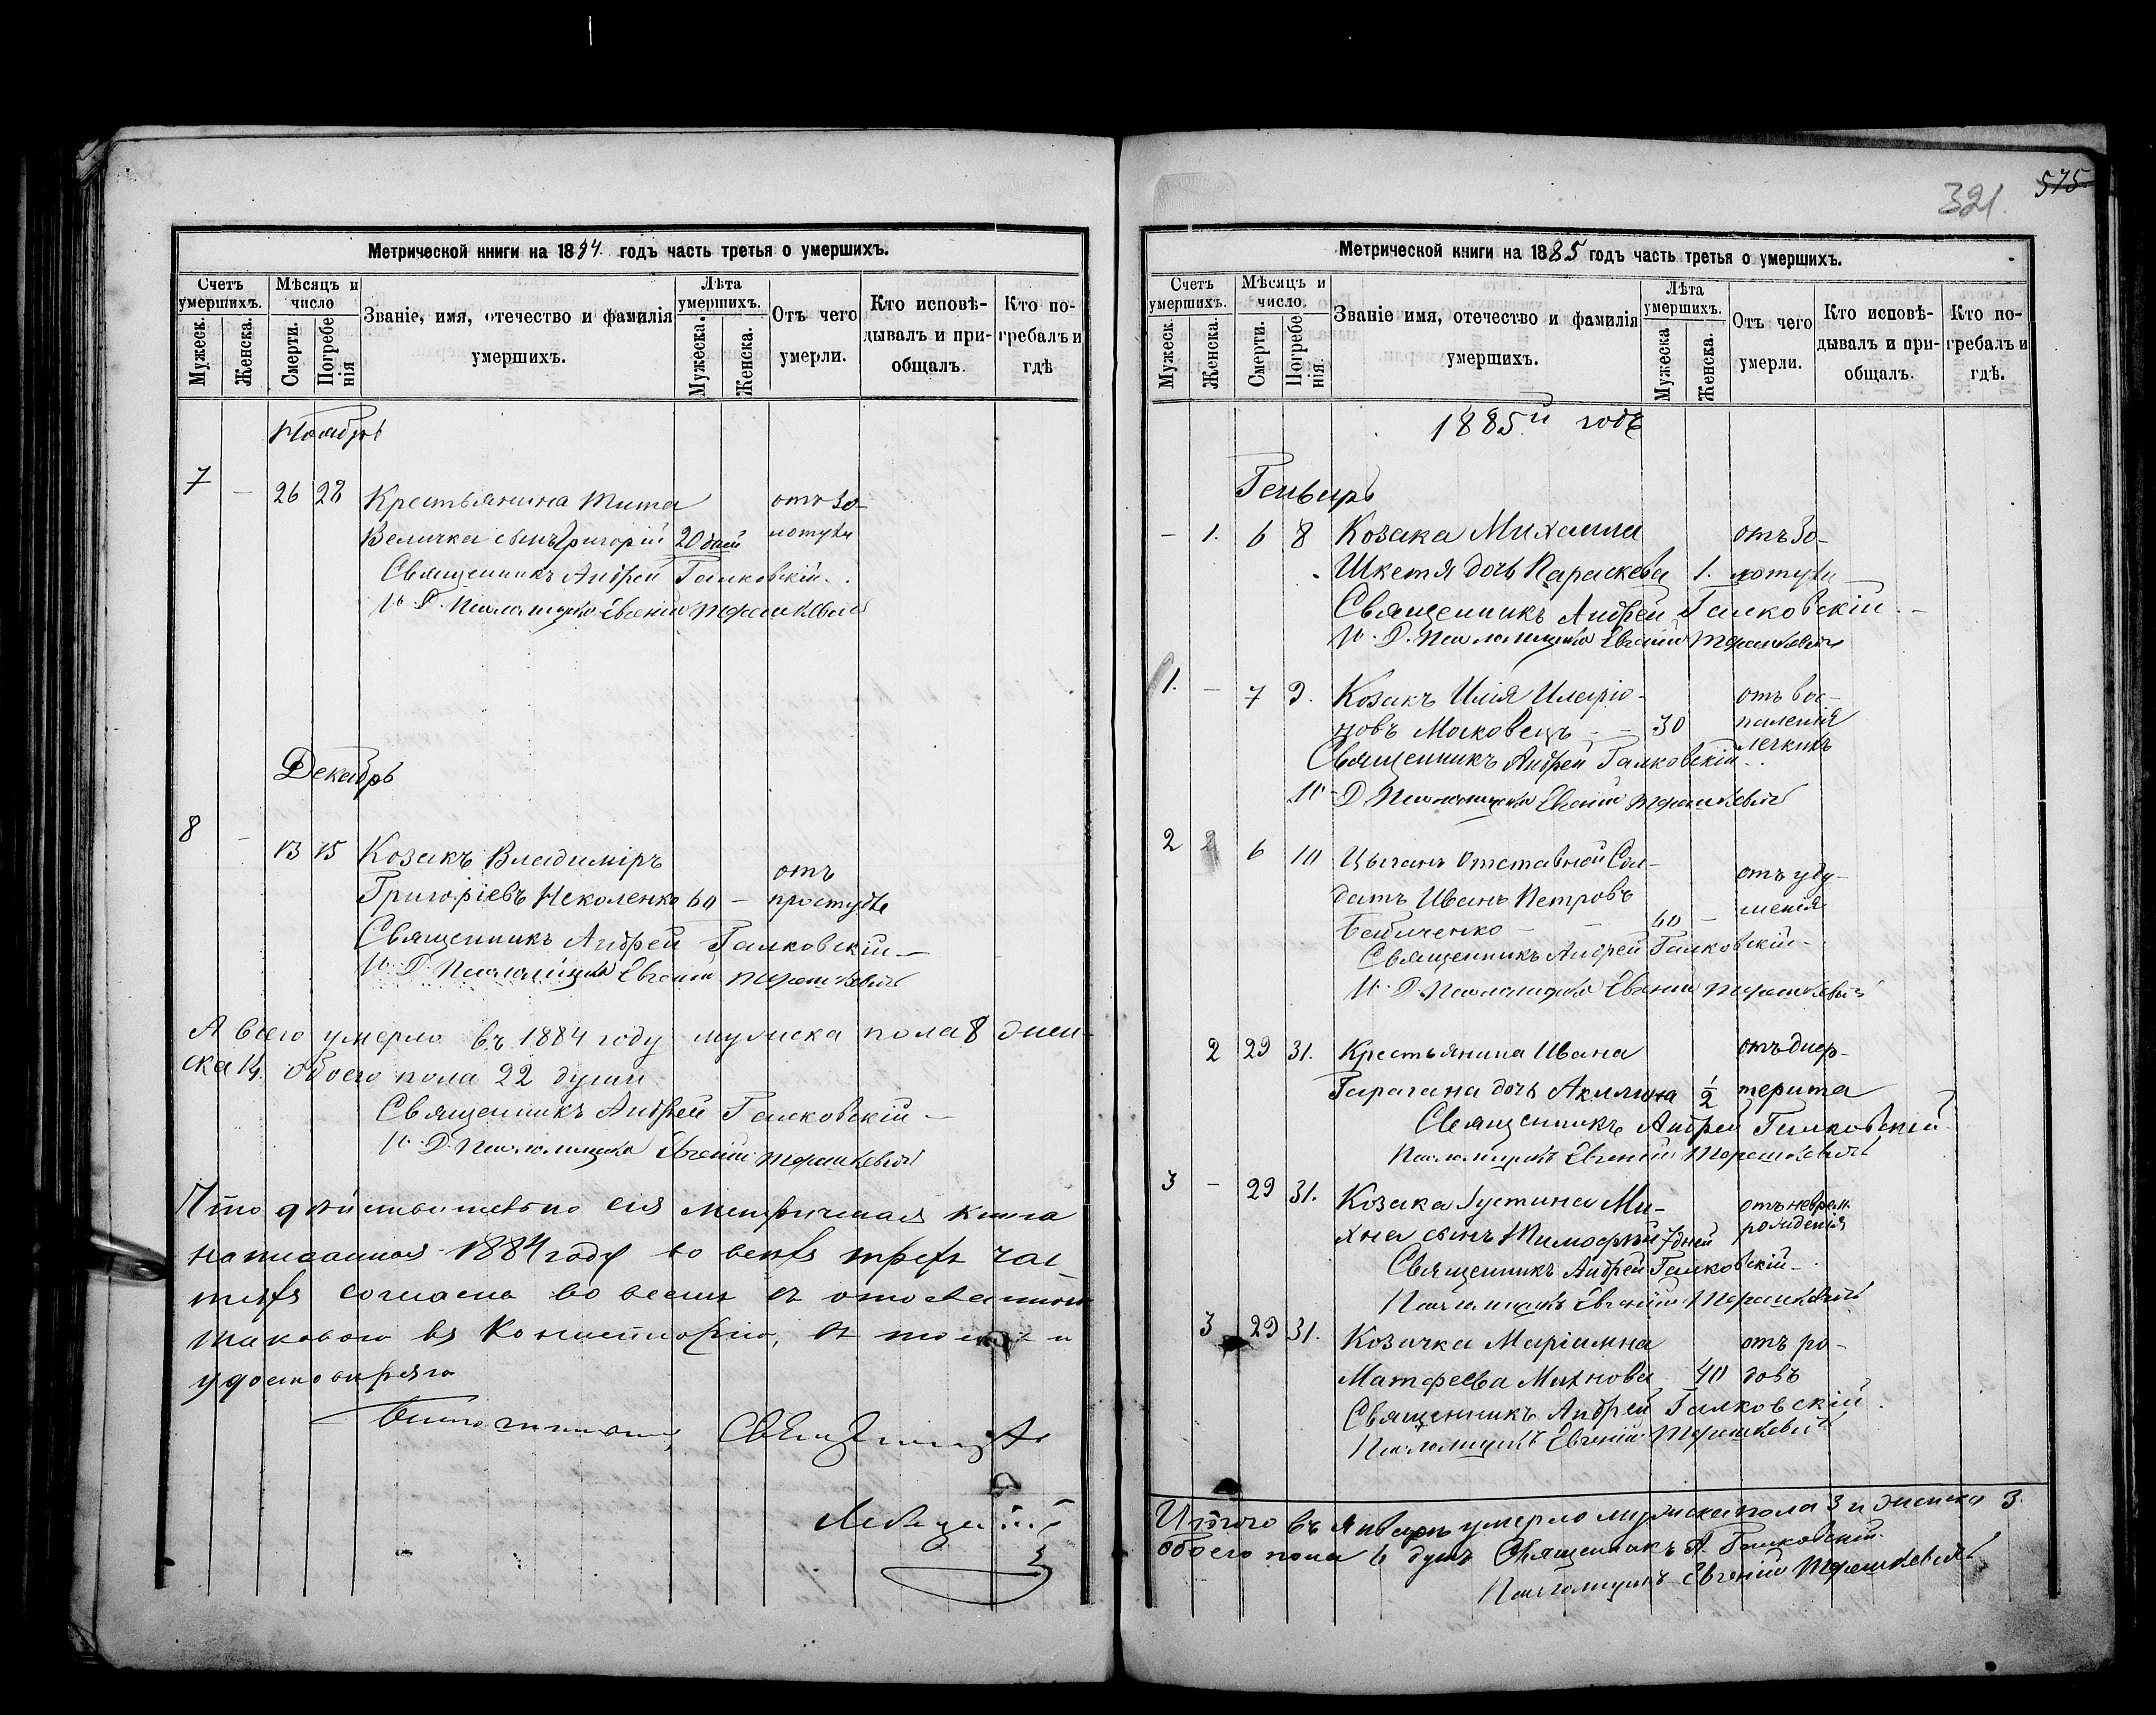 321.
575
Метрической книги на 1884 годъ часть третья о умершихъ.
Счетъ умершихъ.
Мѣсяцъ и число
Званіе, имя, отечество и фамилія умершихъ.
Лѣта умершихъ.
Отъ чего умерли.
Кто исповѣдывалъ и пріобщалъ.
Кто погребалъ и гдѣ
Мужеск.
Женска.
Смерти.
Погребенія
Мужеска.
Женска.
Ноябрь
7 — 26 28 Крестьянина Тита отъ зо-
Величка сынъ Григорій 20 дней лотухи
Священникъ Андрей Галковскій.
И. Д. Псаломщика Евгеній Терашкевичъ
Декабрь
8 — 13 15 Козакъ Владиміръ отъ
Григоріевъ Неколенко 60 — простуды
Священникъ Андрей Галковскій —
И. Д. Псаломщика Евгеній Терашкевичъ
А всего умерло въ 1884 году мужеска пола 8 жен-
ска 14. Обоего пола 22 души
Священникъ Андрей Галковскій —
И. Д. Псаломщика Евгеній Терашкевичъ
Что дѣйствительно сія метрическая книга
написанная 1884 году во всѣхъ трехъ час-
тяхъ согласна во всемъ съ
таковою въ Консисторію, въ томъ и
удостовѣряю
Священникъ
Метрической книги на 1885 годъ часть третья о умершихъ.
Счетъ умершихъ.
Мѣсяцъ и число.
Званіе имя, отечество и фамилія умершихъ.
Лѣта умершихъ.
Отъ чего умерли.
Кто исповѣдывалъ и пріобщалъ.
Кто погребалъ и гдѣ.
Мужеск.
Женска.
Смерти.
Погребенія.
Мужеска
Женска.
1885й годъ
Генварь
— 1. 6 8 Козака Михаила отъ зо-
Шкетя дочь Параскева 1. лотухи
Священникъ Андрей Галковскій —
И. Д. Псаломщика Евгеній Терашкевичъ
1. — 7 9. Козакъ Илія Иларіо- отъ вос-
новъ Маковецъ — — 30 паленія
легкихъ
Священникъ Андрей Галковскій.
И. Д. Псаломщика Евгеній Терашкевичъ
2 2 6 10 Цыганъ отставной Сол- отъ уду-
датъ Иванъ Петровъ шенія
— — 60 —
Священникъ Андрей Галковскій —
И. Д. Псаломщика Евгеній Терашкевичъ
2 29 31. Крестьянина Ивана отъ дифтерита
Гарагана дочь Акилина 1/2
Священникъ Андрей Галковскій
Псаломщикъ Евгеній Терашкевичъ
3 — 29 31. Козака Іустина Ми- отъ неврем.
хна сынъ Тимофей 7 дней рожденія
Священникъ Андрей Галковскій —
Псаломщикъ Евгеній Терашкевичъ
3 29 31. Козачка Маріамна отъ ро-
Матфеева Михнова 40 довъ
Священникъ Андрей Галковскій.
Псаломщикъ Евгеній Терашкевичъ
Итого въ Январѣ умерло мужска пола 3 и женска 3.
Обоего пола 6 душъ Священникъ А. Галковскій
Псаломщикъ Евгеній Терашкевичъ